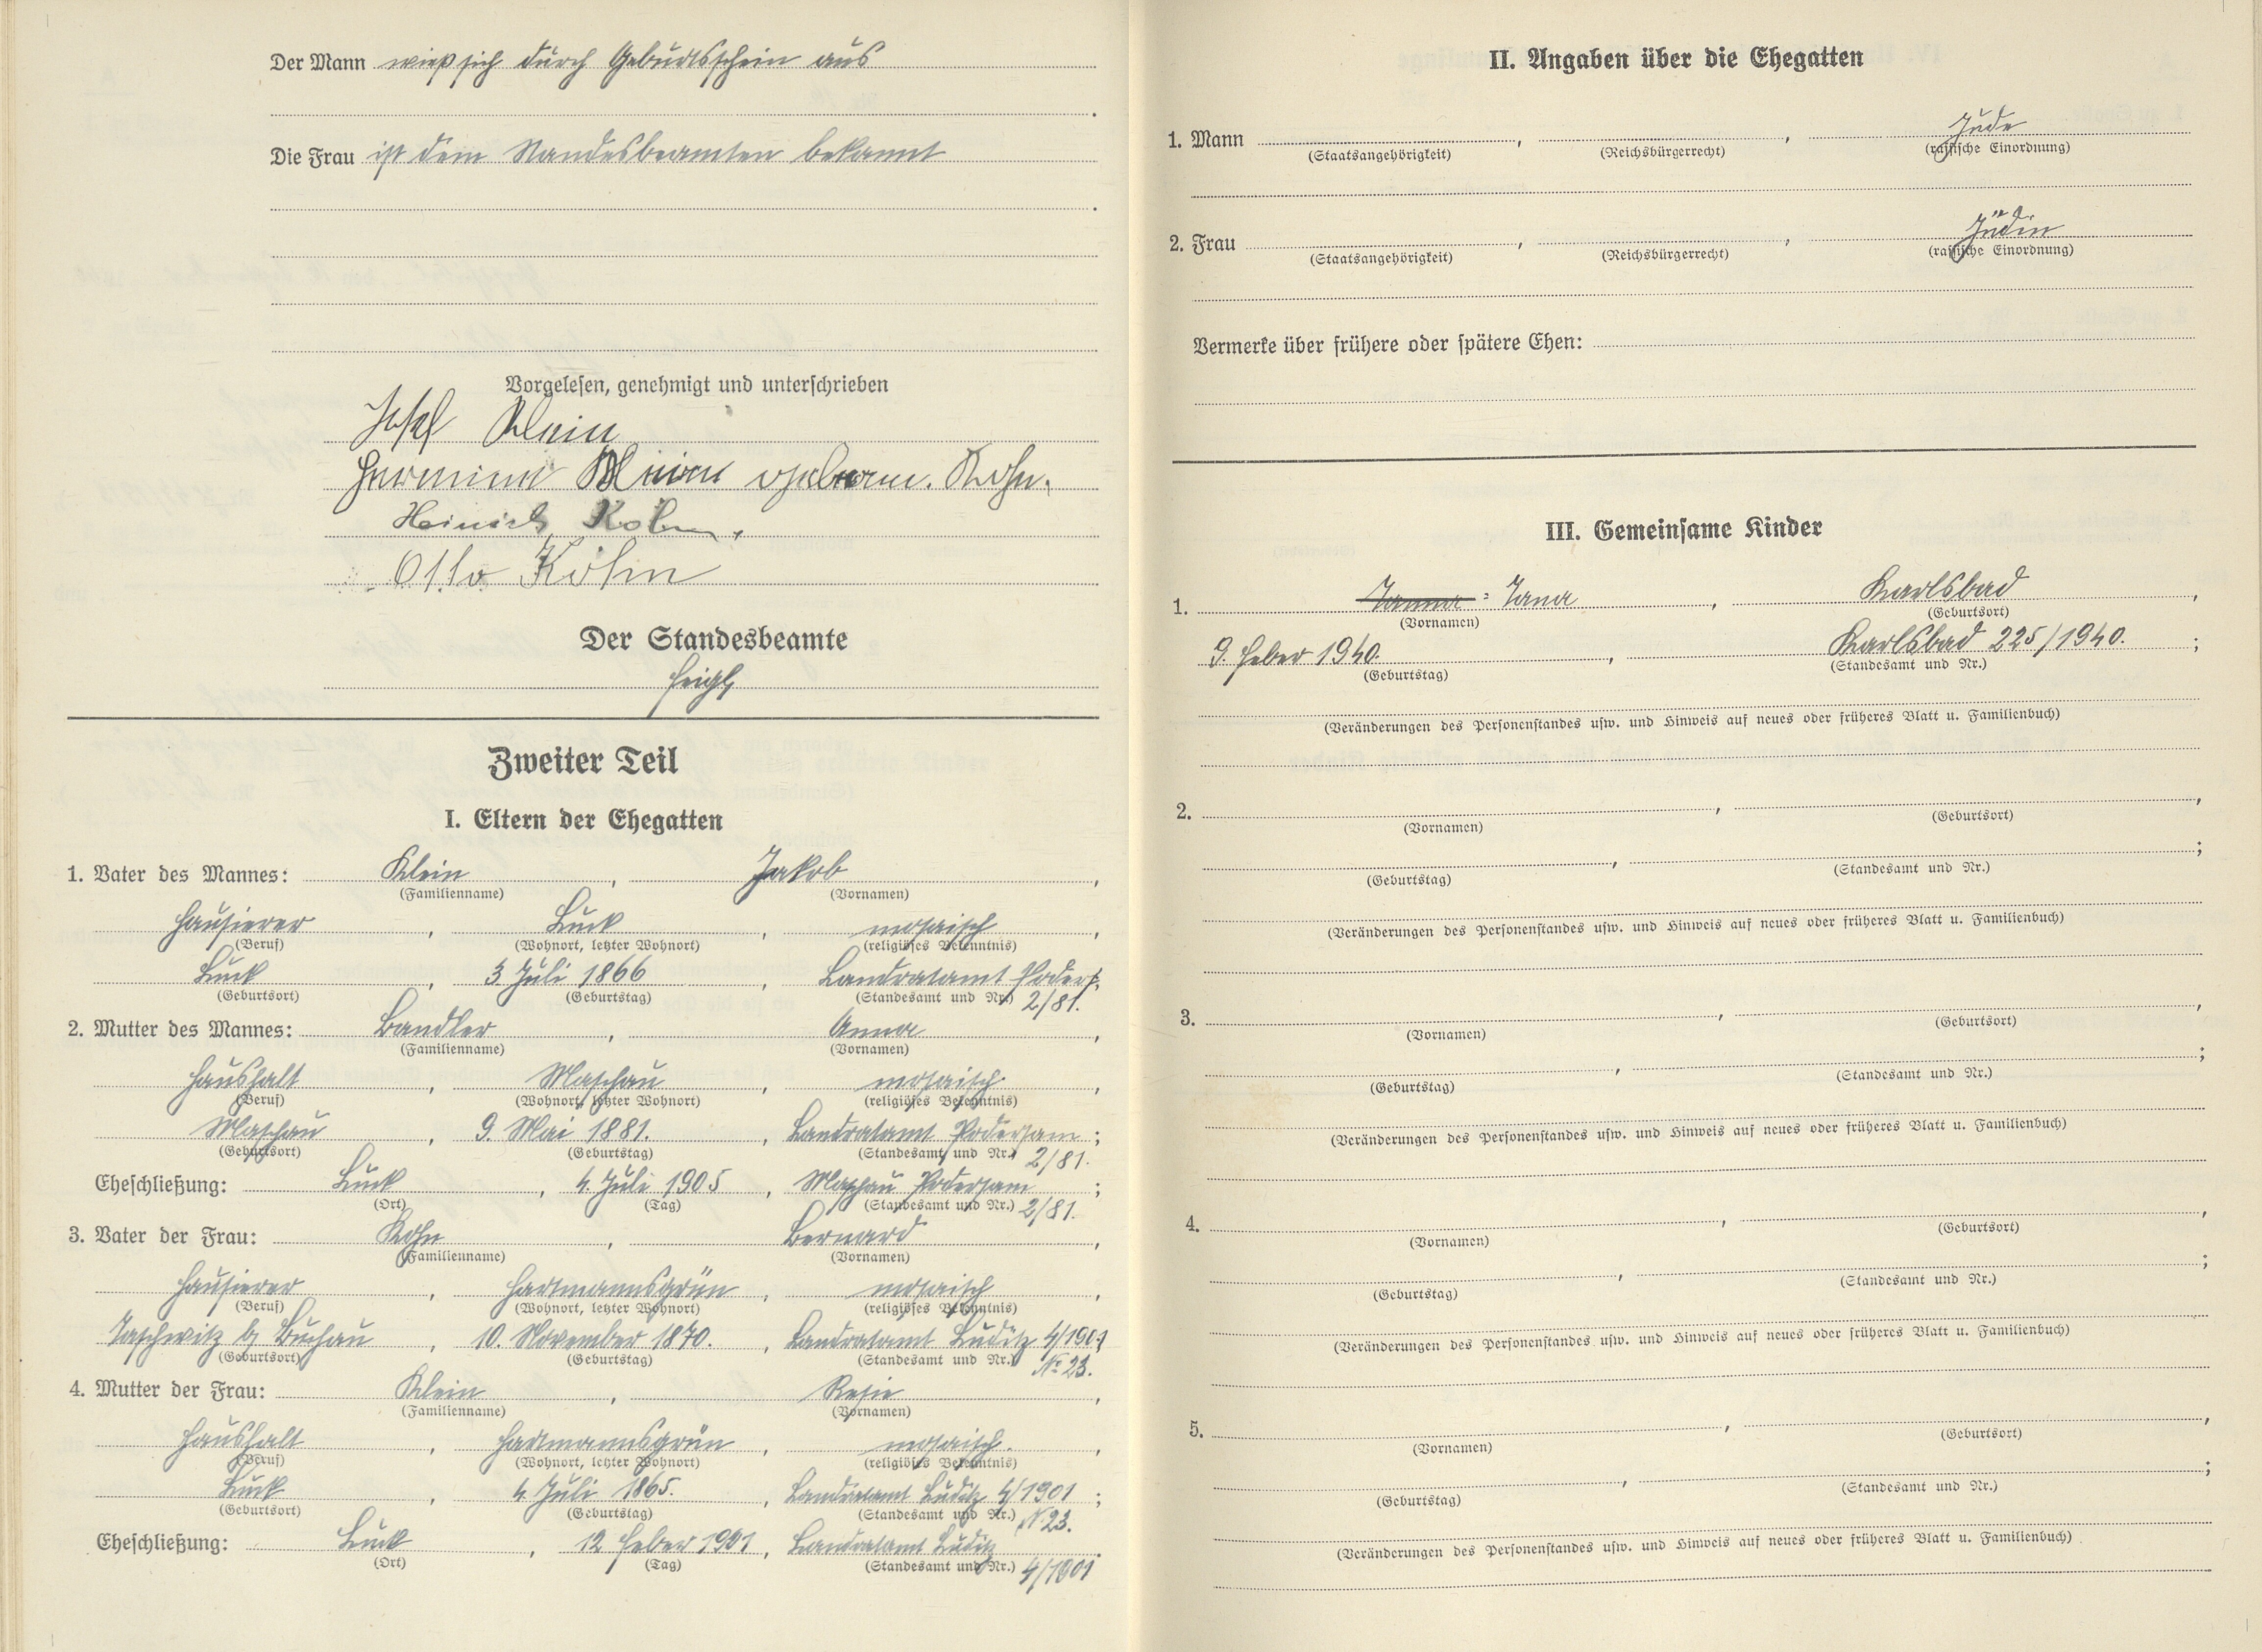 Der Mann wieß sich durch Geburtsschein aus
Die Frau ist dem Standesbeamten bekannt
Vorgelesen, genehmigt und unterschrieben
Josef Klein
Hermine Klein geborene. Kohn.
Heinrich Kohn.
Otto Kohn
Der Standesbeamte
Feigl
Zweiter Teil
I. Eltern der Ehegatten
1. Vater des Mannes: Klein, Jakob,
(Familienname) (Vornamen)
Hausierer, Luck, mosaisch,
(Beruf) (Wohnort, letzter Wohnort) (religiöses Bekenntnis)
Luck, 3 Juli 1866 Landratamt Poders.
(Geburtsort) (Geburtstag) (Standesamt und Nr.) 2/81.
2. Mutter des Mannes: Bandler, Anna,
(Familienname) (Vornamen)
Haushalt, Maschau, mosaisch,
(Beruf) (Wohnort, letzter Wohnort) (religiöses Bekenntnis)
Maschau, 9. Mai 1881., Landratamt Podersam;
(Geburtsort) (Geburtstag) (Standesamt und Nr.) 2/81.
Eheschließung: Luck, 4. Juli 1905, Maschau Podersam;
(Ort) (Tag) (Standesamt und Nr.) 2/81.
3. Vater der Frau: Kohn, Bernard,
(Familienname) (Vornamen)
Hausierer, Hartmannsgrün, mosaisch,
(Beruf) (Wohnort, letzter Wohnort) (religiöses Bekenntnis)
Taschwitz b/ Buchau, 10. November 1870., Landratamt Luditz 4/1901
(Geburtsort) (Geburtstag) (Standesamt und Nr.) No 23.
4. Mutter der Frau: Klein, Resie,
(Familienname) (Vornamen)
Haushalt, Hartmannsgrün, mosaisch.,
(Beruf) (Wohnort, letzter Wohnort) (religiöses Bekenntnis)
Luck, 4. Juli 1865., Landratamt Luditz 4/1901;
(Geburtsort) (Geburtstag) (Standesamt und Nr.) N 23.
Eheschließung: Luck, 12 Feber 1901, Landratamt Luditz
(Ort) (Tag) (Standesamt und Nr.) 4/1901
II. Angaben über die Ehegatten
1. Mann , , Jude
(Staatsangehörigkeit) (Reichsbürgerrecht) (rassische Einordnung)
2. Frau , , Jüdin
(Staatsangehörigkeit) (Reichsbürgerrecht) (rassische Einordnung)
Vermerke über frühere oder spätere Ehen:
III. Gemeinsame Kinder
1. Janna = Jana, Karlsbad,
(Vornamen) (Geburtsort)
9. Feber 1940., Karlsbad 225/1940.;
(Geburtstag) (Standesamt und Nr.)
(Veränderungen des Personenstandes usw. und Hinweis auf neues oder früheres Blatt u. Familienbuch)
2. , ,
(Vornamen) (Geburtsort)
, ;
(Geburtstag) (Standesamt und Nr.)
(Veränderungen des Personenstandes usw. und Hinweis auf neues oder früheres Blatt u. Familienbuch)
3. , ,
(Vornamen) (Geburtsort)
, ;
(Geburtstag) (Standesamt und Nr.)
(Veränderungen des Personenstandes usw. und Hinweis auf neues oder früheres Blatt u. Familienbuch)
4. , ,
(Vornamen) (Geburtsort)
, ;
(Geburtstag) (Standesamt und Nr.)
(Veränderungen des Personenstandes usw. und Hinweis auf neues oder früheres Blatt u. Familienbuch)
5. , ,
(Vornamen) (Geburtsort)
, ;
(Geburtstag) (Standesamt und Nr.)
(Veränderungen des Personenstandes usw. und Hinweis auf neues oder früheres Blatt u. Familienbuch)